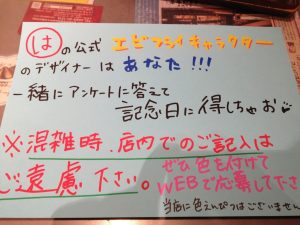 はの公式 エビフライキャラクター
のデザイナーは あなた!!!
一緒にアンケートに答えて
記念日に得しちゃお
※混雑時、店内でのご記入は
ご遠慮下さい。
ぜひ色を付けて
WEBで応募して下さ
当店に色えんぴつはございません